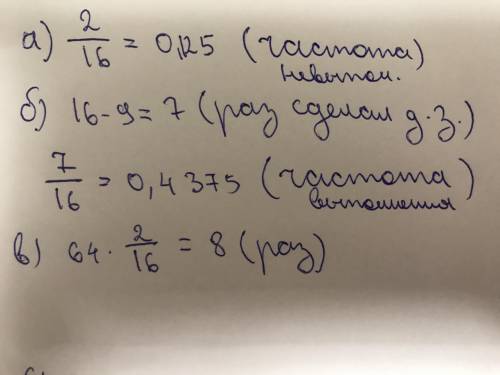 а) 2/16 = 0,125 (частота)
невыпол.
б) 16-9=7 (раз сделал д.з.)
7/16 = 0,4375 (частота)
выполнения
в) 64 · 2/16 = 8 (раз)